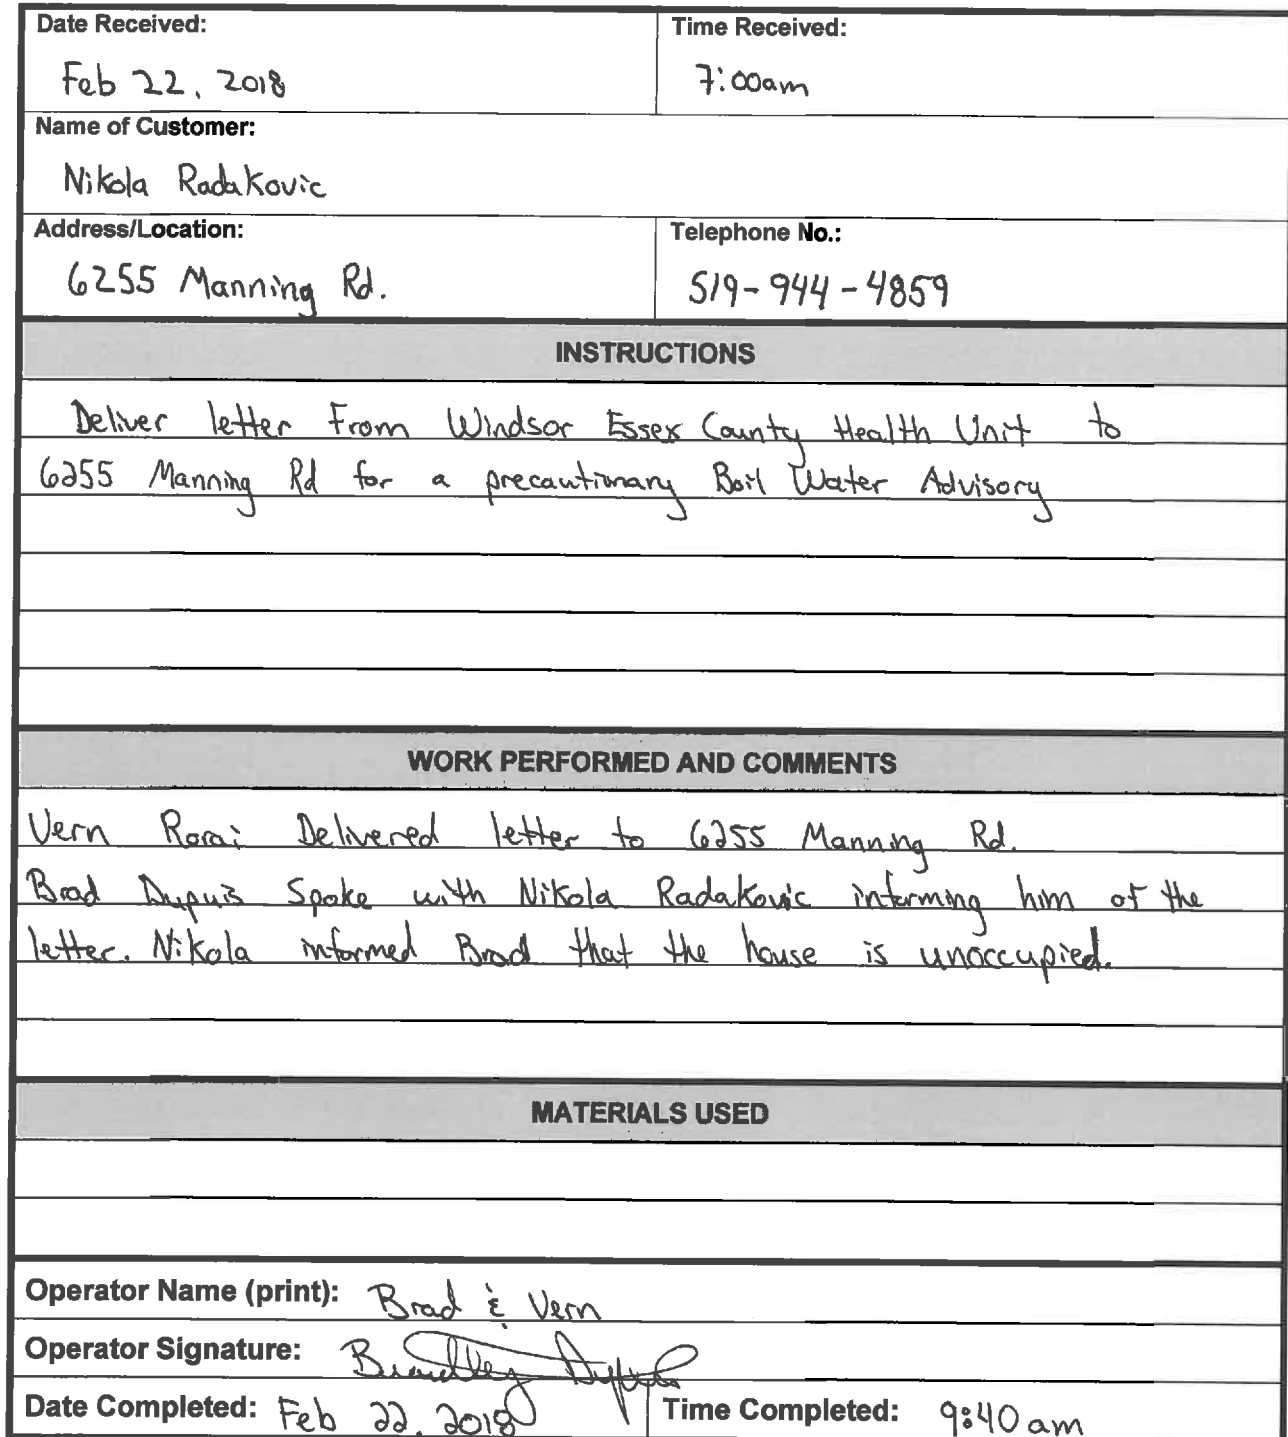 Date Received:
Time Received:
Feb 22, 2018
7:00am
Name of Customer:
Nikola Radakovic
Address/Location:
Telephone No.:
6255 Manning Rd.
519-944-4859
INSTRUCTIONS
Deliver letter From Windsor Essex County Health Unit to
6255 Manning Rd for a precautionary Boil Water Advisory
WORK PERFORMED AND COMMENTS
Vern Rorai Delivered letter to 6255 Manning Rd.
Brad Dupuis Spoke with Nikola Radakovic informing him of the
letter. Nikola informed Brad that the house is unoccupied.
MATERIALS USED
Operator Name (print): Brad & Vern
Operator Signature: Bradley Dupuis
Date Completed: Feb 22, 2018
Time Completed: 9:40 am